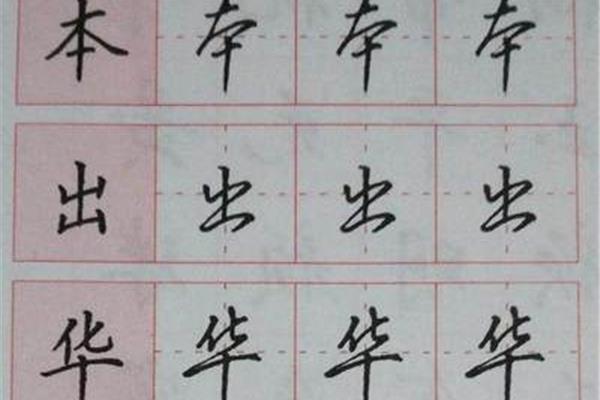 本本本本
出出出出
华华华华